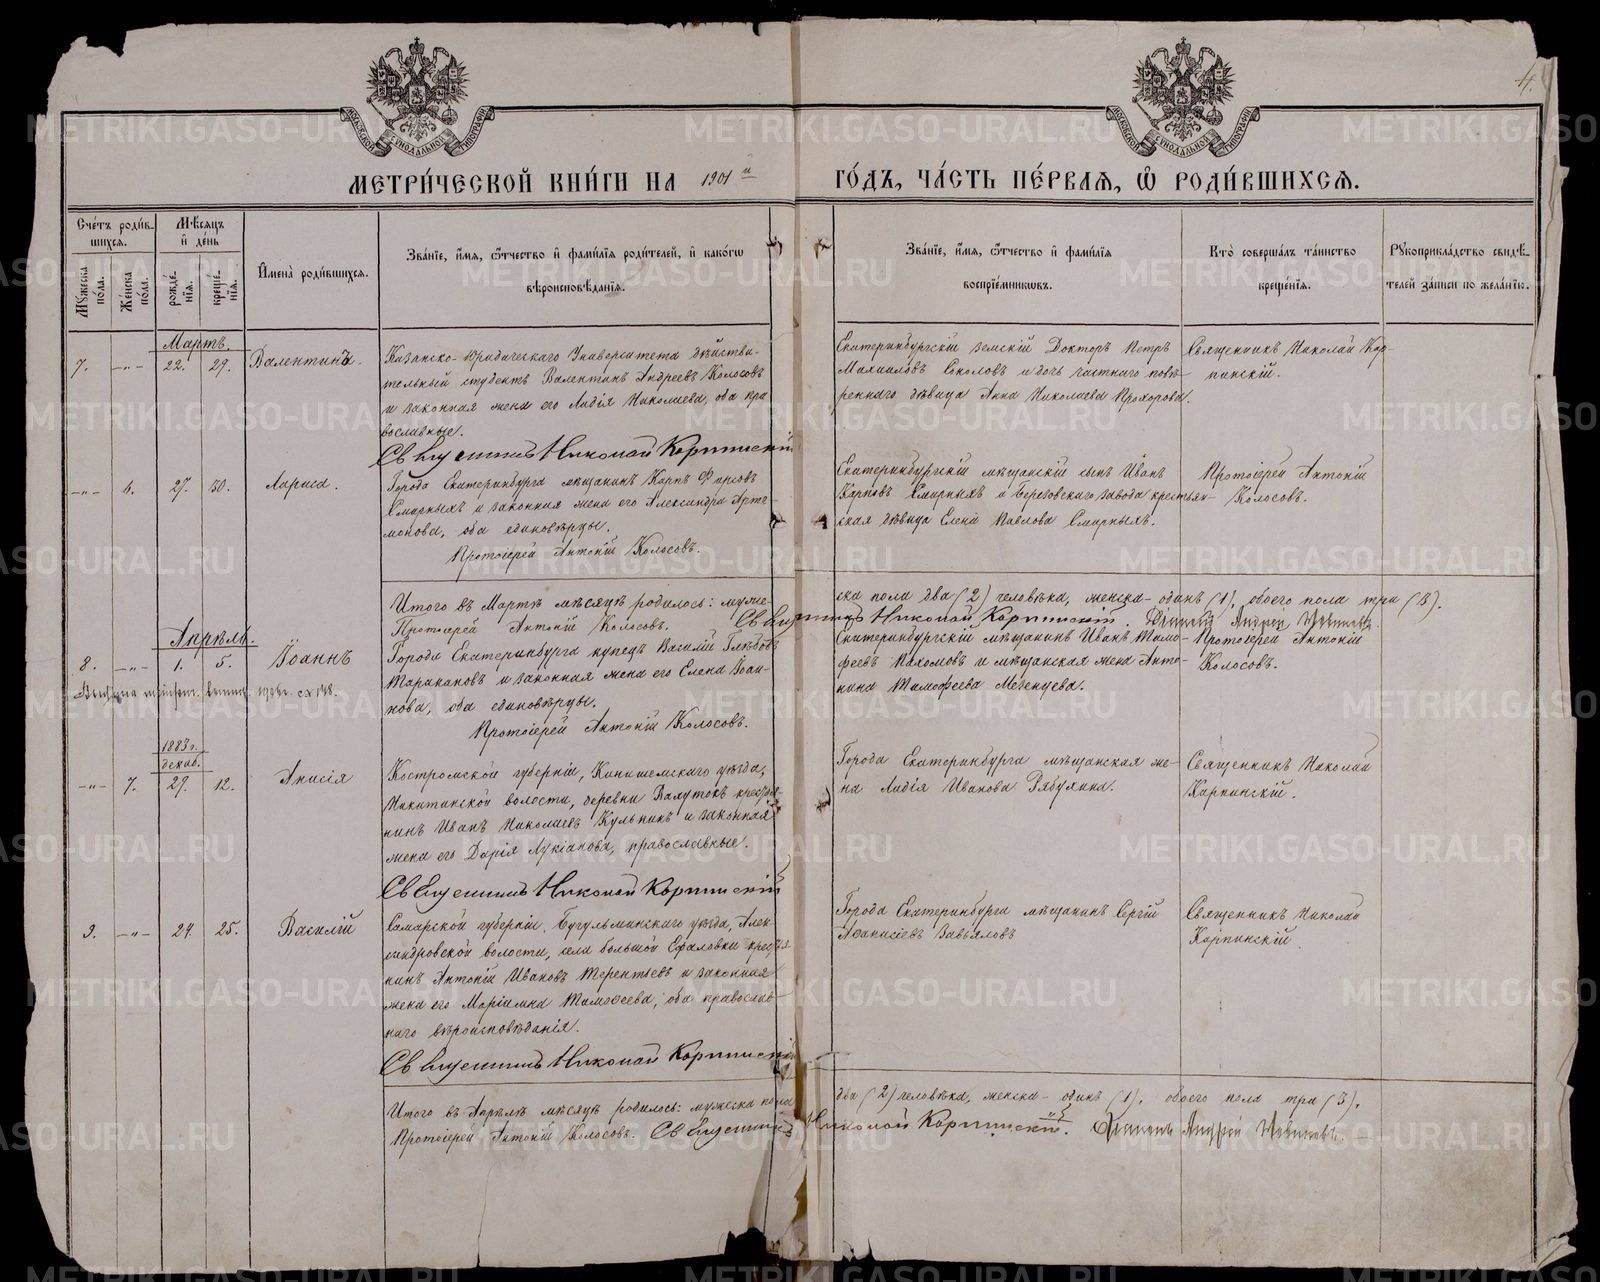 4.
МОСКОВСКОЙ СѴНОДАЛЬНОЙ ТИПОГРАФІИ
МОСКОВСКОЙ СѴНОДАЛЬНОЙ ТИПОГРАФІИ
МЕТРИ́ЧЕСКОЙ КНИ́ГИ НА 1901 й ГО́ДЪ, ЧА́СТЬ ПЕ́РВАЯ, Ѡ҆ РОДИ́ВШИХСЯ.
Сче́тъ роди́в-
шихся.
Мꙋ́жеска по́ла.
Же́нска по́ла.
Мѣ́сяцъ
и҆ де́нь
рожде́-
нїя.
креще́-
нїя.
И҆мена̀ роди́вшихся.
Зва́нїе, и҆́мя, ѻ҆́тчество и҆ фами́лїя роди́телей, и҆ како́гѡ
вѣроисповѣ́данїя.
Зва́нїе, и҆́мя, ѻ҆́тчество и҆ фами́лїя
воспрїе́мниковъ.
Кто̀ соверша́лъ та́инство
креще́нїя.
Рꙋкоприкла́дство свидѣ́-
телей за́писи по жела́нїю.
Мартъ.
7. -„- 22. 29. Валентинъ.
Казанско-юридическаго Университета дѣйстви-
тельный студентъ Валентинъ Андреевъ Колосовъ
и законная жена его Лидія Николаева, оба пра
вославные.
Священникъ Николай Карпинскій
Екатеринбургскій земскій Докторъ Петръ
Михаиловъ Соколовъ и дочь частнаго повѣ-
реннаго дѣвица Анна Николаева Прохорова.
Священникъ Николай Кар-
пинскій.
-„- 6. 27. 30. Лариса.
Города Екатеринбурга мѣщанинъ Карпъ Фирсовъ
Смирныхъ и законная жена его Александра Арте-
монова, оба единовѣрцы.
Протоіерей Антоній Колосовъ.
Екатеринбургскій мѣщанскій сынъ Иванъ
Карповъ Смирныхъ и Березовскаго завода крестьян-
ская дѣвица Елена Павлова Смирныхъ.
Протоіерей Антоній
Колосовъ.
Итого въ Мартѣ мѣсяцѣ родилось: муже-
ска пола два (2) человѣка, женска- одинъ (1), обоего пола три (3).
Протоіерей Антоній Колосовъ. Священникъ Николай Карпинскій. Діаконъ Андрей
Апрѣль.
8. -„- 1. 5. Іоаннъ
Города Екатеринбурга купецъ Василій Глѣбовъ
Таракановъ и законная жена его Елена Іоан-
нова, оба единовѣрцы.
Протоіерей Антоній Колосовъ.
Екатеринбургскій мѣщанинъ Иванъ Тимо-
феевъ Пахомовъ и мѣщанская жена Анто-
нина Тимофеева Мезенцева.
Протоіерей Антоній
Колосовъ.
1883 г.
декаб.
-„- 7. 29. 12. Анисія
Костромской губерніи, Кинешемскаго уѣзда,
Никитинской волости, деревни Валутокъ крестья-
нинъ Иванъ Николаевъ Кульпинъ и законная
жена его Дарія Лукіанова, православные.
Священникъ Николай Карпинскій
Города Екатеринбурга мѣщанская же-
на Лидія Иванова Рябухина.
Священникъ Николай
Карпинскій.
9. -„- 24. 25. Василій
Самарской губерніи, Бугульминскаго уѣзда, Алек-
сандровской волости, села большой Ефаловки крестья-
нинъ Антоній Ивановъ Терентьевъ и законная
жена его Маріамна Тимофеева, оба православ-
наго вѣроисповѣданія.
Священникъ Николай Карпинскій
Города Екатеринбурга мѣщанинъ Сергій
Аѳанасіевъ Завьяловъ
Священникъ Николай
Карпинскій.
Итого въ Апрѣлѣ мѣсяцѣ родилось: мужеска пола
два (2) человѣка, женска- одинъ (1), обоего пола три (3).
Протоіерей Антоній Колосовъ. Священникъ Николай Карпинскій. Діаконъ Андрей
METRIKI.GASO-URAL.RU